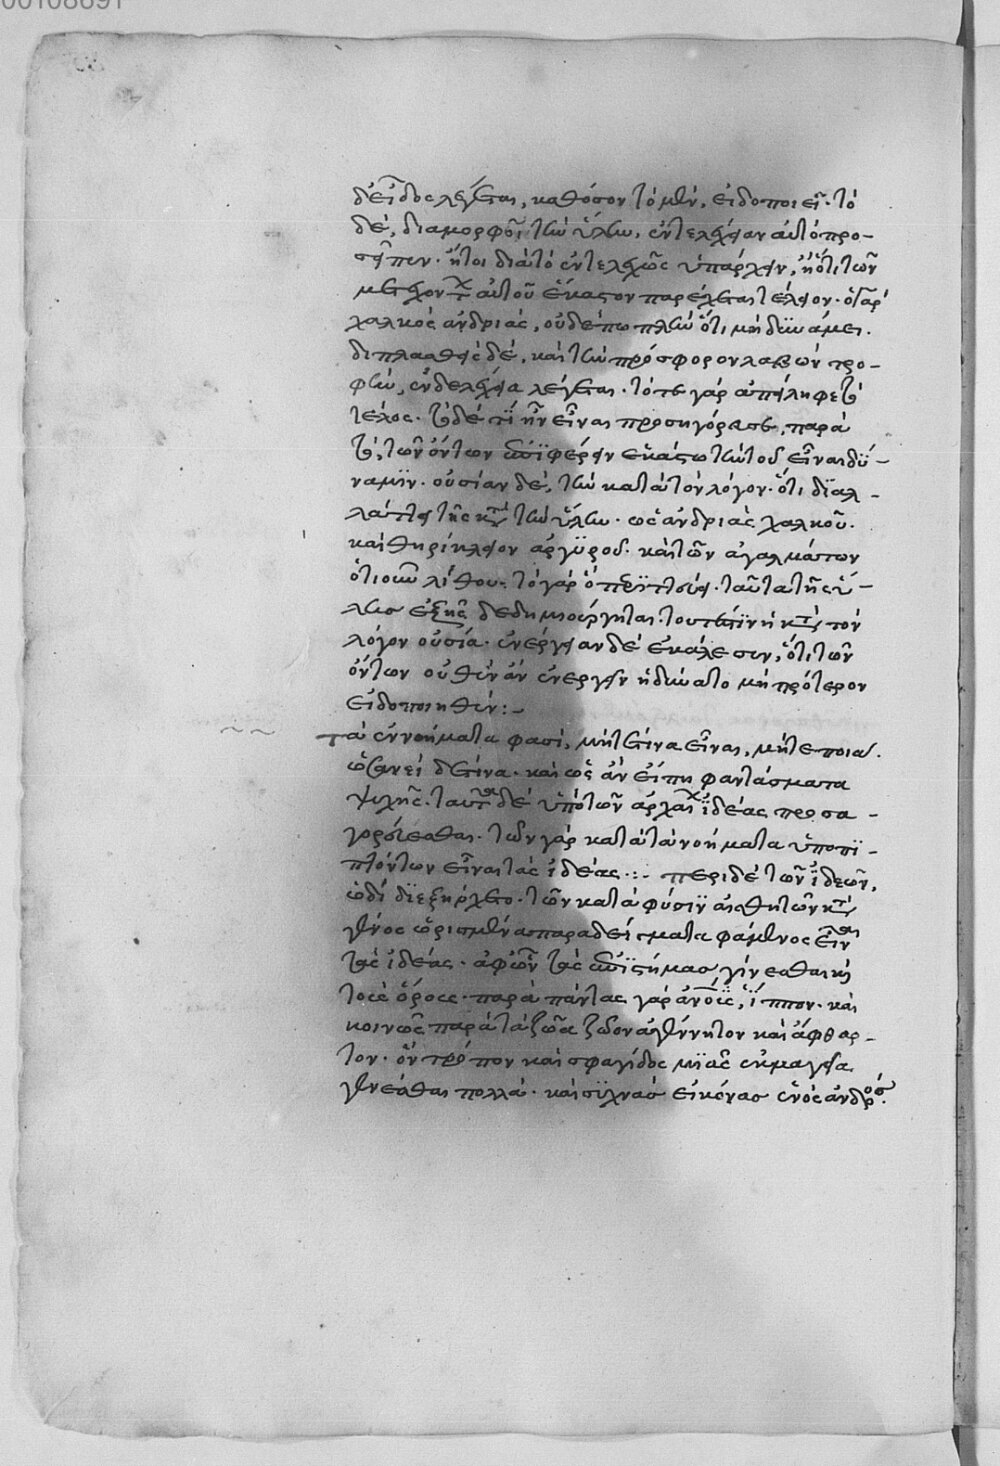 00108691
δὲ εἶδος λέγεται, καθόσον τὸ μὲν, εἰδοποιεῖ· τὸ
δὲ, διαμορφοῖ τὴν ὕλην. ἐντελέχειαν αὐτὸ προ-
σεῖπεν. ἤτοι διὰ τὸ ἐντελεχῶς ὑπάρχειν, ἢ ὅτι τῶν
μετεχόντων αὐτοῦ ἕκαστον παρέχεται τέλειον. ὁ γὰρ
χαλκὸς ἀνδριὰς, οὐδέπω πλὴν ὅτι μὴ δυνάμει.
διπλασθεὶς δὲ, καὶ τὴν πρόσφορον λαβὼν τρο-
φὴν, ἐνδελέχεια λέγεται. τότε γὰρ ἀπείληφε τὸ
τέλος. τὸ δὲ τί ἦν εἶναι προσηγόρευσε, παρὰ
τὸ, τῶν ὄντων ἐπιφέρειν ἑκάστῳ τὴν τοῦ εἶναι δύ-
ναμιν. οὐσίαν δὲ, τὴν κατὰ τὸν λόγον. ὅτι διαλ-
λάττει τῆς κατὰ τὴν ὕλην. ὡς ἀνδριὰς χαλκοῦ.
καὶ θηρίκλειον ἀργύρου. καὶ τῶν ἀγαλμάτων
ὁτιοῦν λίθου. τὸ γὰρ ταῦτα τῆς ὕ-
λης ἑξῆς δεδημιούργηται. τουτέστιν ἡ κατὰ τὸν
λόγον οὐσία. ἐνέργειαν δὲ ἐκάλεσεν, ὅτι τῶν
ὄντων οὐθὲν ἂν ἐνεργεῖν ἠδύνατο μὴ πρότερον
εἰδοποιηθέν:-
τὰ ἐννοήματα φασὶ, μήτε τινα εἶναι, μήτε ποια.
ὡσανεὶ δέ τινα. καὶ ὡς ἂν εἴπῃ φαντάσματα
ψυχῆς. ταῦτα δὲ ὑπὸ τῶν ἀρχαίων ἰδέας προσα-
γορεύεσθαι. τῶν γὰρ κατὰ τὰ νοήματα ὑποπι-
πτόντων εἶναι τὰς ἰδέας:- περὶ δὲ τῶν ἰδεῶν,
ὡδὶ διεξήρχετο. τῶν κατὰ φύσιν αἰσθητῶν κατὰ
γένος ὡρισμένας παραδείγματα φάμενος εἶναι
τὰς ἰδέας. ἀφ' ὧν τὰς ἐπιστήμας γίνεσθαι καὶ
τοὺς ὅρους. παρὰ πάντας γὰρ ἀνους, ἵππον. καὶ
κοινῶς παρὰ τὰ ζῶα ζῶον ἀγέννητον καὶ ἄφθαρ-
τον. ὃν τρόπον καὶ σφραγίδος μιᾶς ἐκμαγεῖα
γενέσθαι πολλά. καὶ συχνὰς εἰκόνας ἑνὸς ἀνδρός.